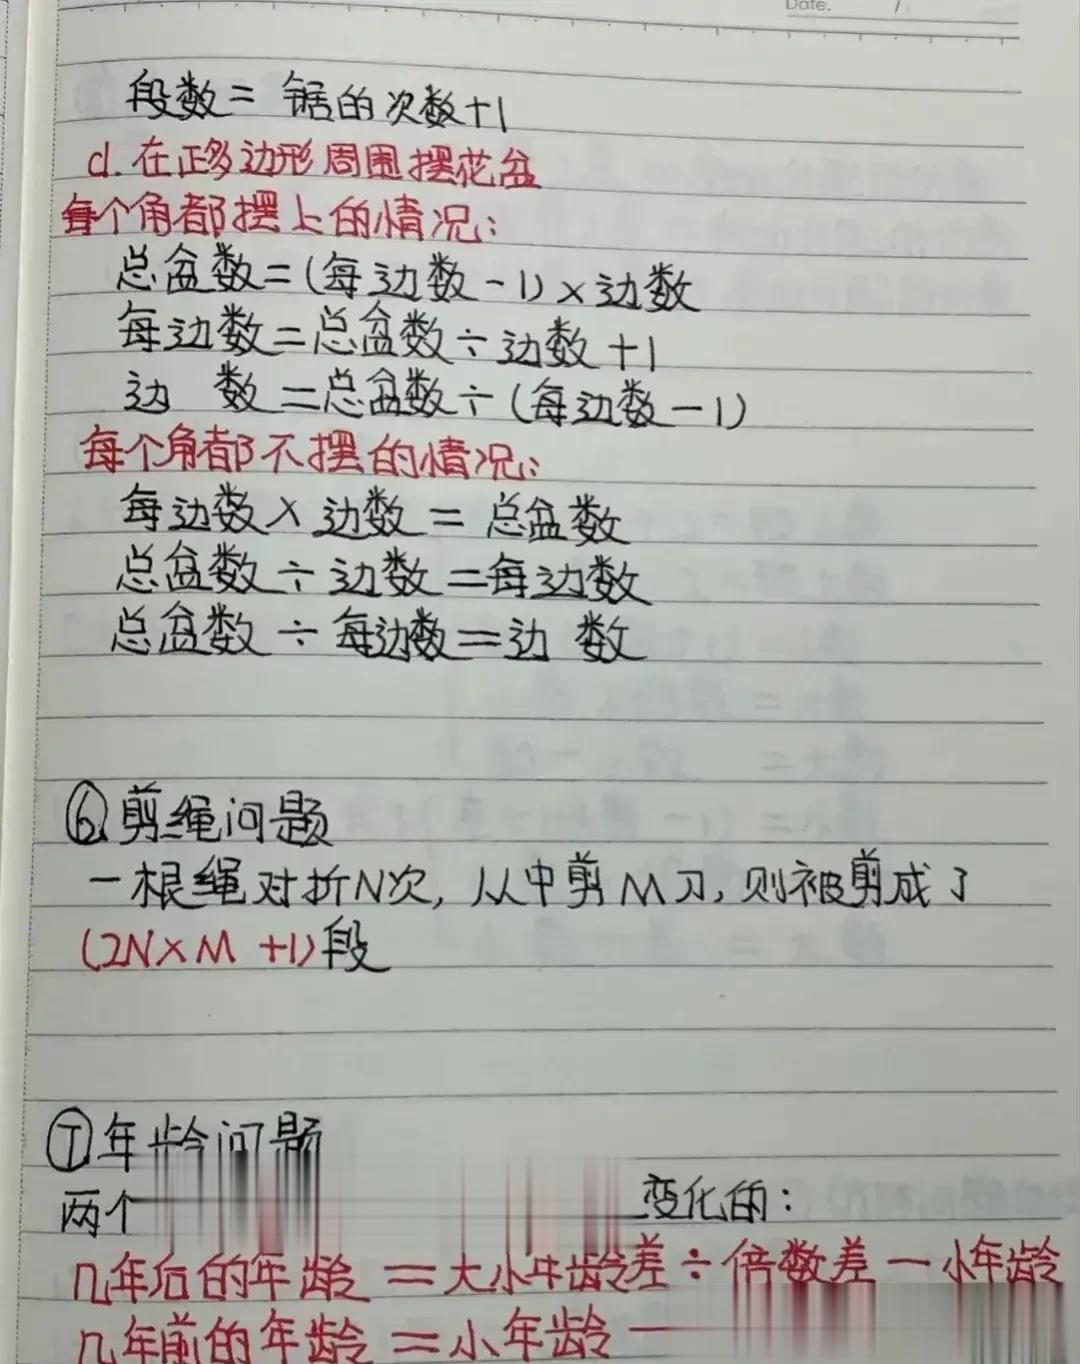 Date. /
段数=锯的次数+1
d.在正多边形周围摆花盆
每个角都摆上的情况:
总盆数=(每边数-1)×边数
每边数=总盆数÷边数+1
边 数=总盆数÷(每边数-1)
每个角都不摆的情况:
每边数×边数=总盆数
总盆数÷边数=每边数
总盆数÷每边数=边 数
⑥剪绳问题
一根绳对折N次,从中剪M刀,则被剪成了
(2N×M+1)段
⑦年龄问题
两个 变化的:
几年后的年龄=大小年龄差÷倍数差-小年龄
几年前的年龄=小年龄-